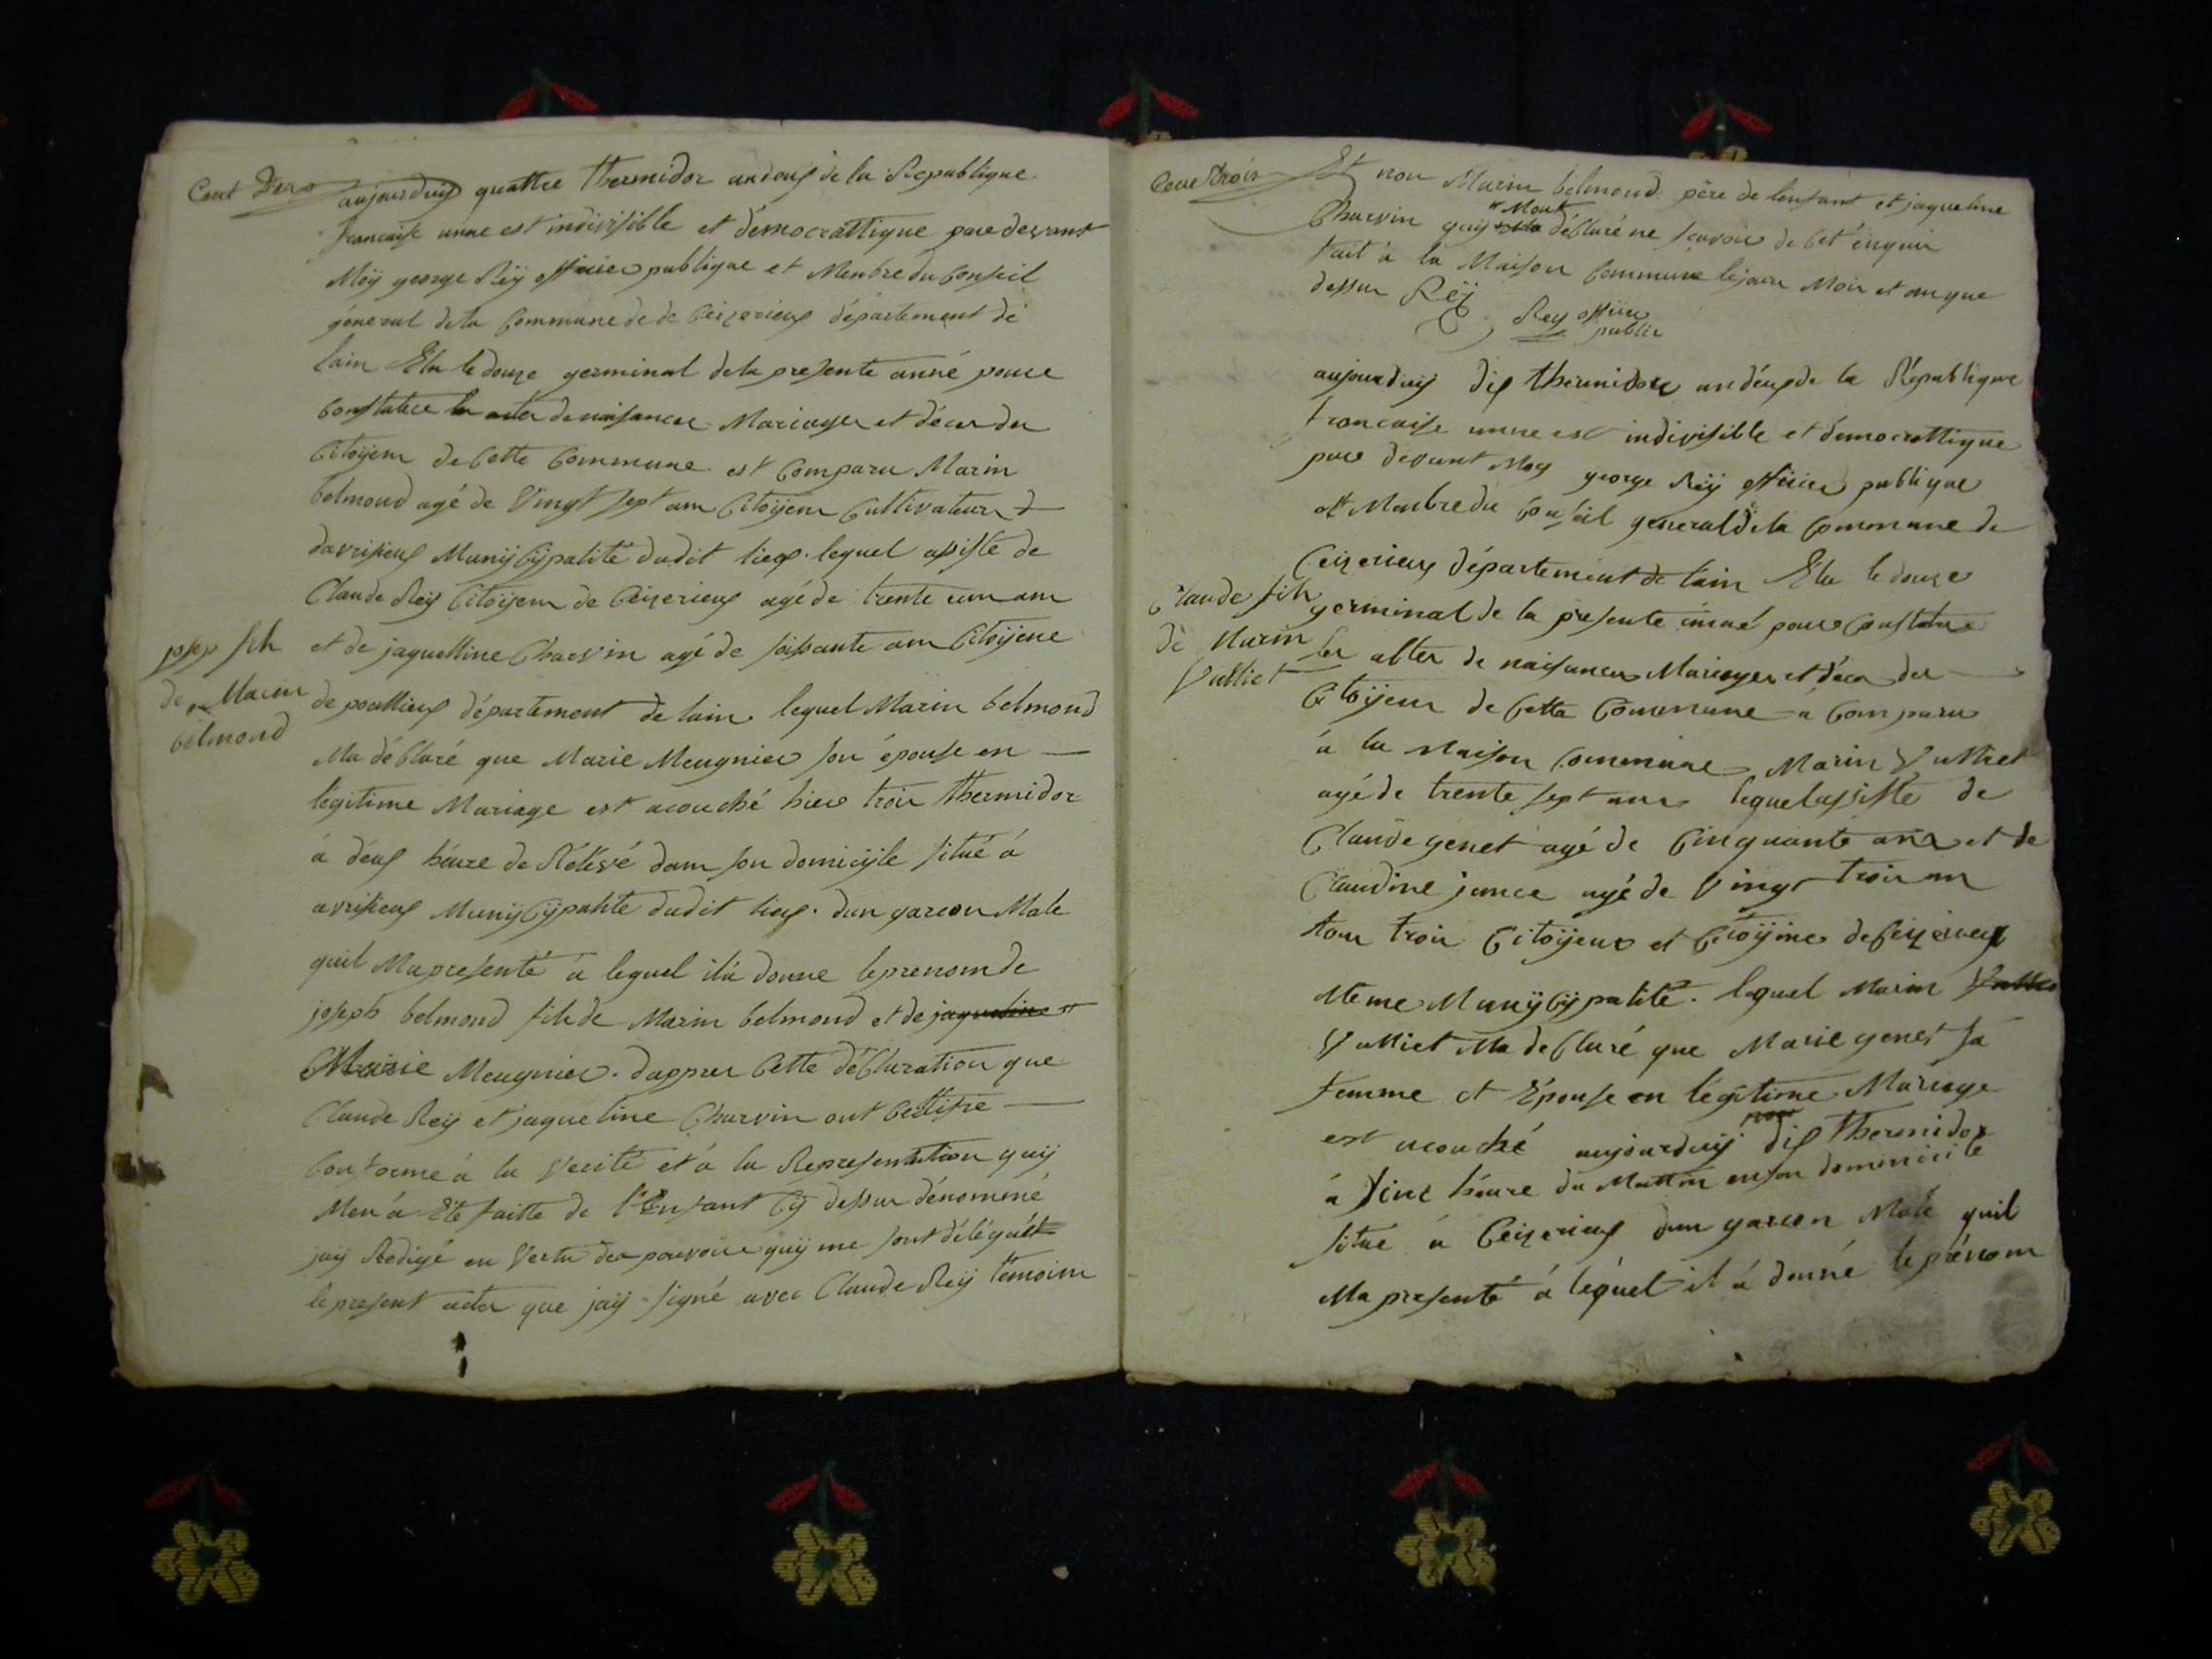 Cent Deux
aujourduij quattre thermidor an deux de la Republique
francaise unne est indivisible et démocrattique pare devant
Moÿ george Reÿ officier publique et Menbre du Conseil
géneral de la Commune de de Ceizerieux département de
lain Elu le douze germinal de la presente anné poure
Constatere les actes de naisances Mariages et déces des
Citoÿens de Cette Commune est Comparu Marin
belmond agé de Vingt sept ans Citoÿens Cultivateurs
davrisieux Munijcijpalité dudit lieux. lequel assiste de
Claude Reÿ Citoÿens de Ceizerieux agé de trente un ans
et de jaquelline Charvin agé de soissante ans Citoÿene
josep fils
de Marin
belmond
de poullieux département de lain lequel Marin belmond
Ma déClaré que Marie Meugnier son épouse en
légitime Mariage est acouché hier trois thermidor
à deux héure de Rélévé dans son domicijle situé à
avrisieux Munijcijpalité dudit lieux. dun garcon Male
quil Ma presenté à lequel il à donne le prenom de
joseph belmond fils de Marin belmond et de jaqueline
Marie Meugnier. dappres Cette déClaration que
Claude Reÿ et jaqueline Charvin ont Certifie
Conforme à la Verité et à la Representation quij
Men à Eté faitte de l'Enfant Cij dessus dénommé
jaij Redigé en Vertu des pouvoire quij me sont délégués
le present actes que jaij signé avec Claude Reÿ témoins
Cent trois
Et non Marin belmond père de lenfant et jaqueline
Charvin quij Mont déClaré ne scavoir de Cet énquis
fait à la Maison Commune le jour Mois et an que
dessus Reÿ
Rey officier
public
aujourduij dix thermidore an déux de la Républiqve
francaise unne est indivisible et démocrattique
pare devant Moij george Reÿ officier publique
et Menbre du Conseil general de la Commune de
Ceizerieux département de lain Elu le douze
Claude fils
de Marin
Vulliet
germinal de la presente anné poure Constatere
les actes de naisances Mariages et déces des
Citoÿens de Cette Commune à Comparu
à la Maison Commune Marin Vulliet
agé de trente sept ans lequel assisté de
Claude genet agé de Cinquante ans et de
Claudine agé de Vingt trois ans
tous trois Citoÿens et Citoÿines de Ceizerieux
Méme Munijcijpalité. lequel Marin
Vulliet Ma deClaré que Marie genet sa
femme et Épouse en légitime Mariage
est acouché aujourduij dix thermidor
à héure du Mattin en son dommicile
situé à Ceizerieux dun garcon Male quil
Ma presenté à léquel il à donné le prénom